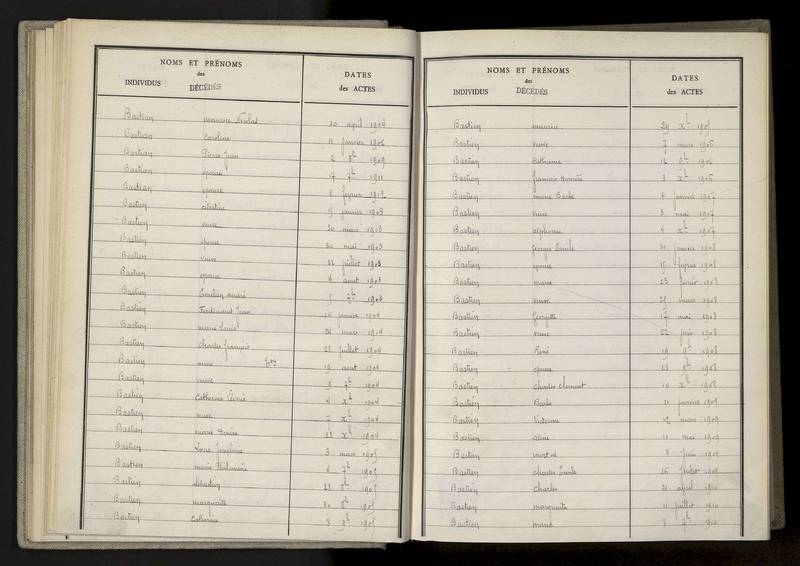 NOMS ET PRÉNOMS
des
INDIVIDUS DÉCÉDÉS
DATES
des ACTES
Bastian Maurice Nicolas 10 avril 1904
Bastian Caroline 11 janvier 1906
Bastian Pierre Jean 2 8b 1909
Bastian épouse 17 7b 1911
Bastian épouse 8 février 1912
Bastien célestin janvier 1903
Bastien veuve 20 mars 1903
Bastien épouse 30 mai 1903
Bastien veuve 22 juillet 1903
Bastien épouse 4 aout 1903
Bastien Emilien André 7b 1903
Bastien Ferdinand Jean janvier 1904
Bastien Marie Louise mars 1904
Bastien Charles François 28 juillet 1904
Bastien 19 aout 1904
Bastien veuve 9 7b 1904
Bastien Catherine 4 Xb 1904
Bastien 7 Xb 1904
Bastien Marie 28 Xb 1904
Bastien Joséphine 3 mars 1905
Bastien Marie 4 7b 1905
Bastien Sébastien 28 8b 1905
Bastien Marguerite 30 8b 1905
Bastien Catherine 8 9b 1905
NOMS ET PRÉNOMS
des
INDIVIDUS DÉCÉDÉS
DATES
des ACTES
Bastien Maurice 29 Xb 1905
Bastien veuve 7 mars 1906
Bastien Catherine 12 9b 1906
Bastien François 3 Xb 1906
Bastien Marie Barbe 7 janvier 1907
Bastien veuve 3 mai 1907
Bastien alphonse 4 Xb 1907
Bastien Georges Emile janvier 1908
Bastien épouse février 1908
Bastien Marie 23 février 1908
Bastien veuve mars 1908
Bastien Georgette 17 mai 1908
Bastien veuve 22 juin 1908
Bastien René 19 9b 1908
Bastien épouse 28 9b 1908
Bastien Charles Clément 10 Xb 1908
Bastien Barbe 11 janvier 1909
Bastien Victorine 12 mars 1909
Bastien aline 11 mai 1909
Bastien mort né 8 juin 1909
Bastien Charles Emile 26 juillet 1909
Bastien Charles 20 avril 1910
Bastien Marguerite 11 juillet 1910
Bastien Marie 8 7b 1910